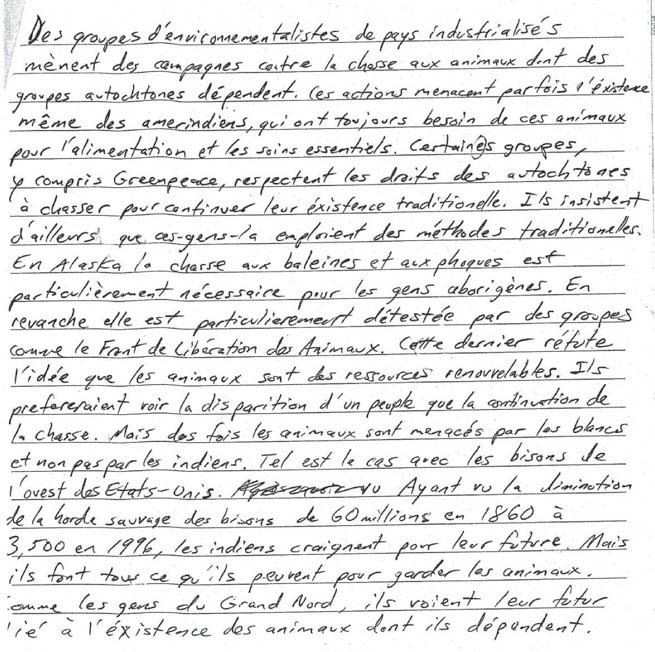 Des groupes d'environnementalistes de pays industrialisés
mènent des campagnes contre la chasse aux animaux dont des
groupes autochtones dépendent. Ces actions menacent parfois l'éxistence
même des amerindiens, qui ont toujours besoin de ces animaux
pour l'alimentation et les soins essentiels. Certainès groupes,
y compris Greenpeace, respectent les droits des autochtones
à chasser pour continuer leur éxistence traditionelle. Ils insistent
d'ailleurs que ces-gens-là emploient des méthodes traditionelles.
En Alaska la chasse aux baleines et aux phoques est
particulièrement nécessaire pour les gens aborigènes. En
revanche elle est particulierement détestée par des groupes
comme le Front de Libération des Animaux. Cette dernier réfute
l'idée que les animaux sont des ressources renouvelables. Ils
prefereraient voir la disparition d'un peuple que la continuation de
la chasse. Mais des fois les animaux sont menacés par les blancs
et non pas par les indiens. Tel est le cas avec les bisons de
l'ouest des Etats-Unis. vu Ayant vu la diminution
de la horde sauvage des bisons de 60 millions en 1860 à
3,500 en 1996, les indiens craignent pour leur future. Mais
ils font tous ce qu'ils peuvent pour garder les animaux.
comme les gens du Grand Nord, ils voient leur futur
lié à l'éxistence des animaux dont ils dépendent.